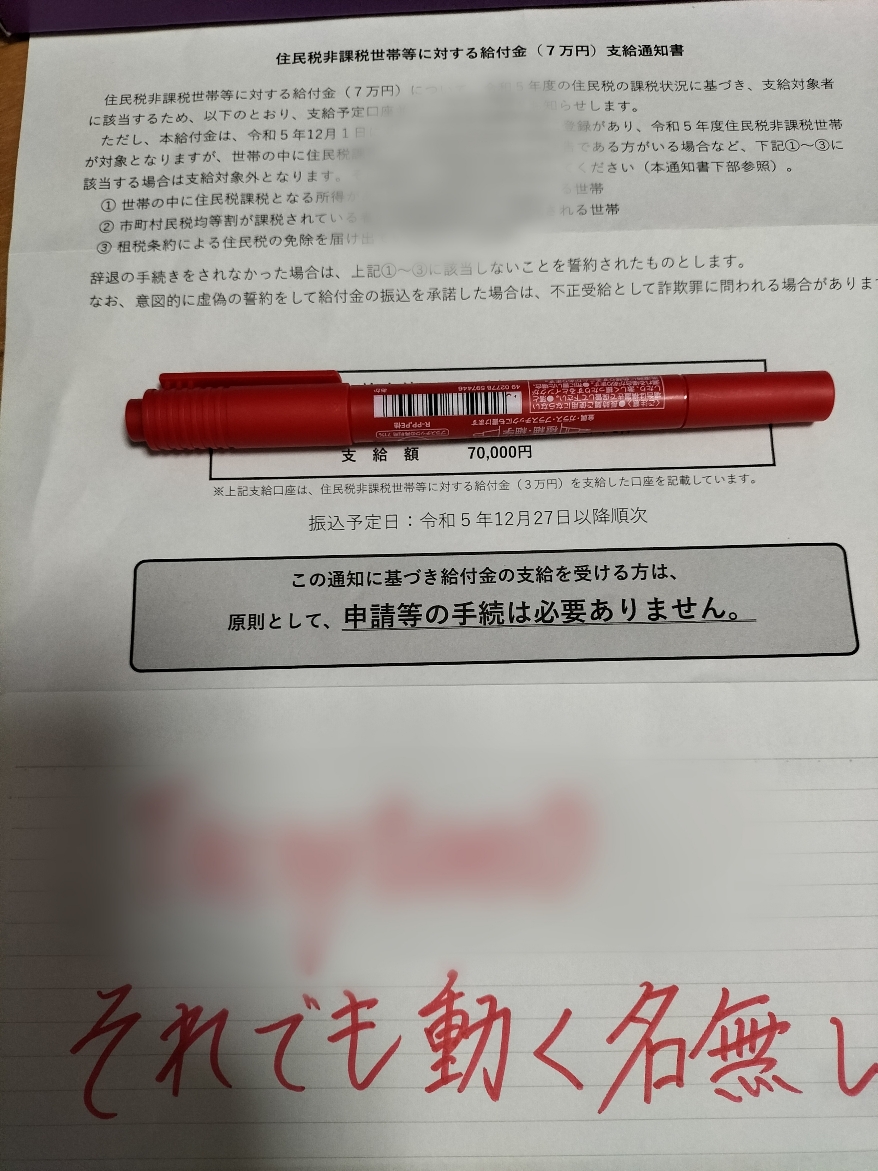 住民税非課税世帯等に対する給付金（７万円）支給通知書
住民税非課税世帯等に対する給付金（７万円）に 年度の住民税の課税状況に基づき、支給対象者
に該当するため、以下のとおり、支給予定口座 知らせします。
ただし、本給付金は、令和５年12月１日 登録があり、令和５年度住民税非課税世帯
が対象となりますが、世帯の中に住民税 である方がいる場合など、下記①～③に
該当する場合は支給対象外となります。 ください（本通知書下部参照）。
① 世帯の中に住民税課税となる所得が る世帯
② 市町村民税均等割が課税されている れる世帯
③ 租税条約による住民税の免除を届け出
辞退の手続きをされなかった場合は、上記①～③に該当しないことを誓約されたものとします。
なお、意図的に虚偽の誓約をして給付金の振込を承諾した場合は、不正受給として詐欺罪に問われる場合があります
あか
49 02778 597446
R-PP,PE他
金属・ガラス・プラスチックにも書けます
支 給 額 70,000円
※上記支給口座は、住民税非課税世帯等に対する給付金（３万円）を支給した口座を記載しています。
振込予定日：令和５年12月27日以降順次
この通知に基づき給付金の支給を受ける方は、
原則として、申請等の手続は必要ありません。
それでも動く名無し